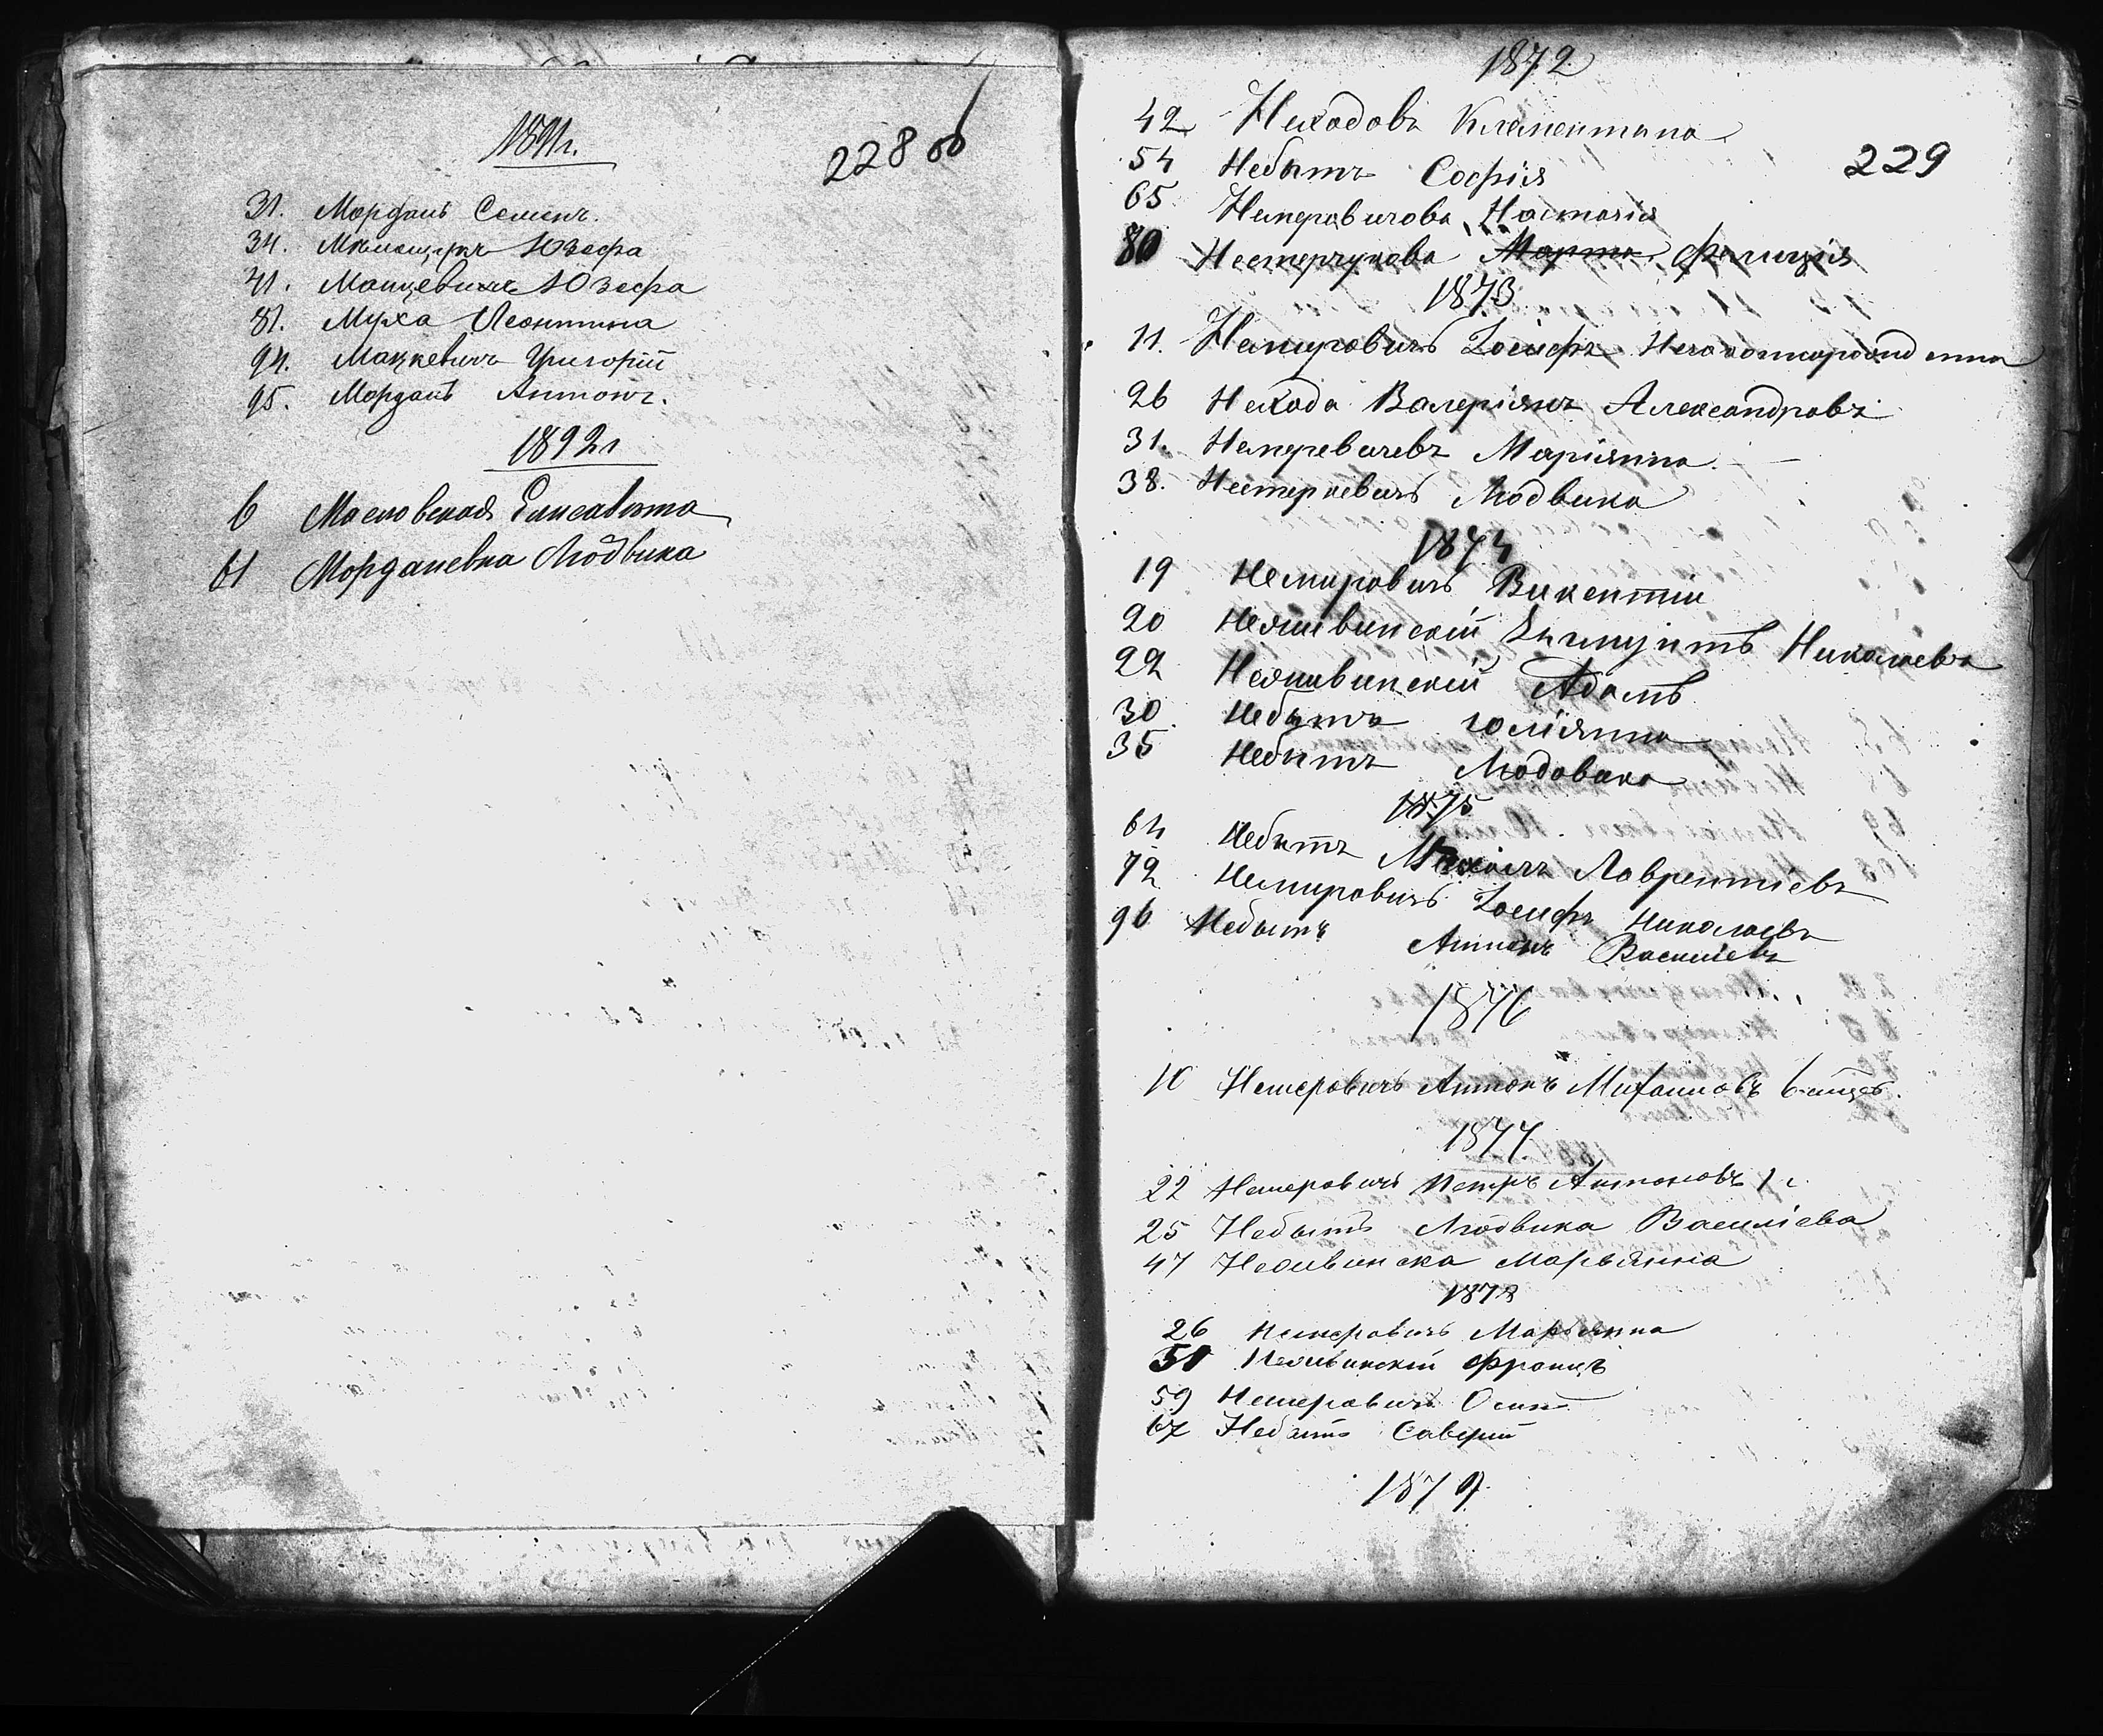 1891г.
228 об
31. Морданъ Семенъ.
34. Юзефа
41. Манцевичъ Юзефа
81. Муха Леонтина
94. Мацкевичъ Григорій
95. Морданъ Антонъ.
1892г
6 Масловская Елисавета
61 Морданевна Людвика
1872
229
42 Неходовъ Клементина
54 Небытъ Софія
65 Немеровичова Настазія
80 Нестерчукова Марта Фелиція
1873
11. Немировичъ Іосифъ
26 Нехода Валеріянъ Александровъ
31. Немеревичевъ Маріянна
38. Нестеркевичъ Людвика
1874
19 Немировичъ Викентій
20 Неяшвинскій Николаевъ
22 Неяшвинскій Адамъ
30 Небытъ Юліянна
35 Небытъ Людовика
1875
64 Небытъ Лаврентіевъ
72 Немировичъ Іосифъ Николаевъ
96 Небытъ Антонъ Василіевъ
1876
10 Немеровичъ Антонъ Михаиловъ 6
1877
22 Немеровичъ Петръ Антоновъ 1 г.
25 Небытъ Людвика Василіева
47 Марьянна
1878
26 Немеровичъ Марьянна
51 Францъ
59 Немеровичъ Осипъ
67 Небытъ Саверій
1879